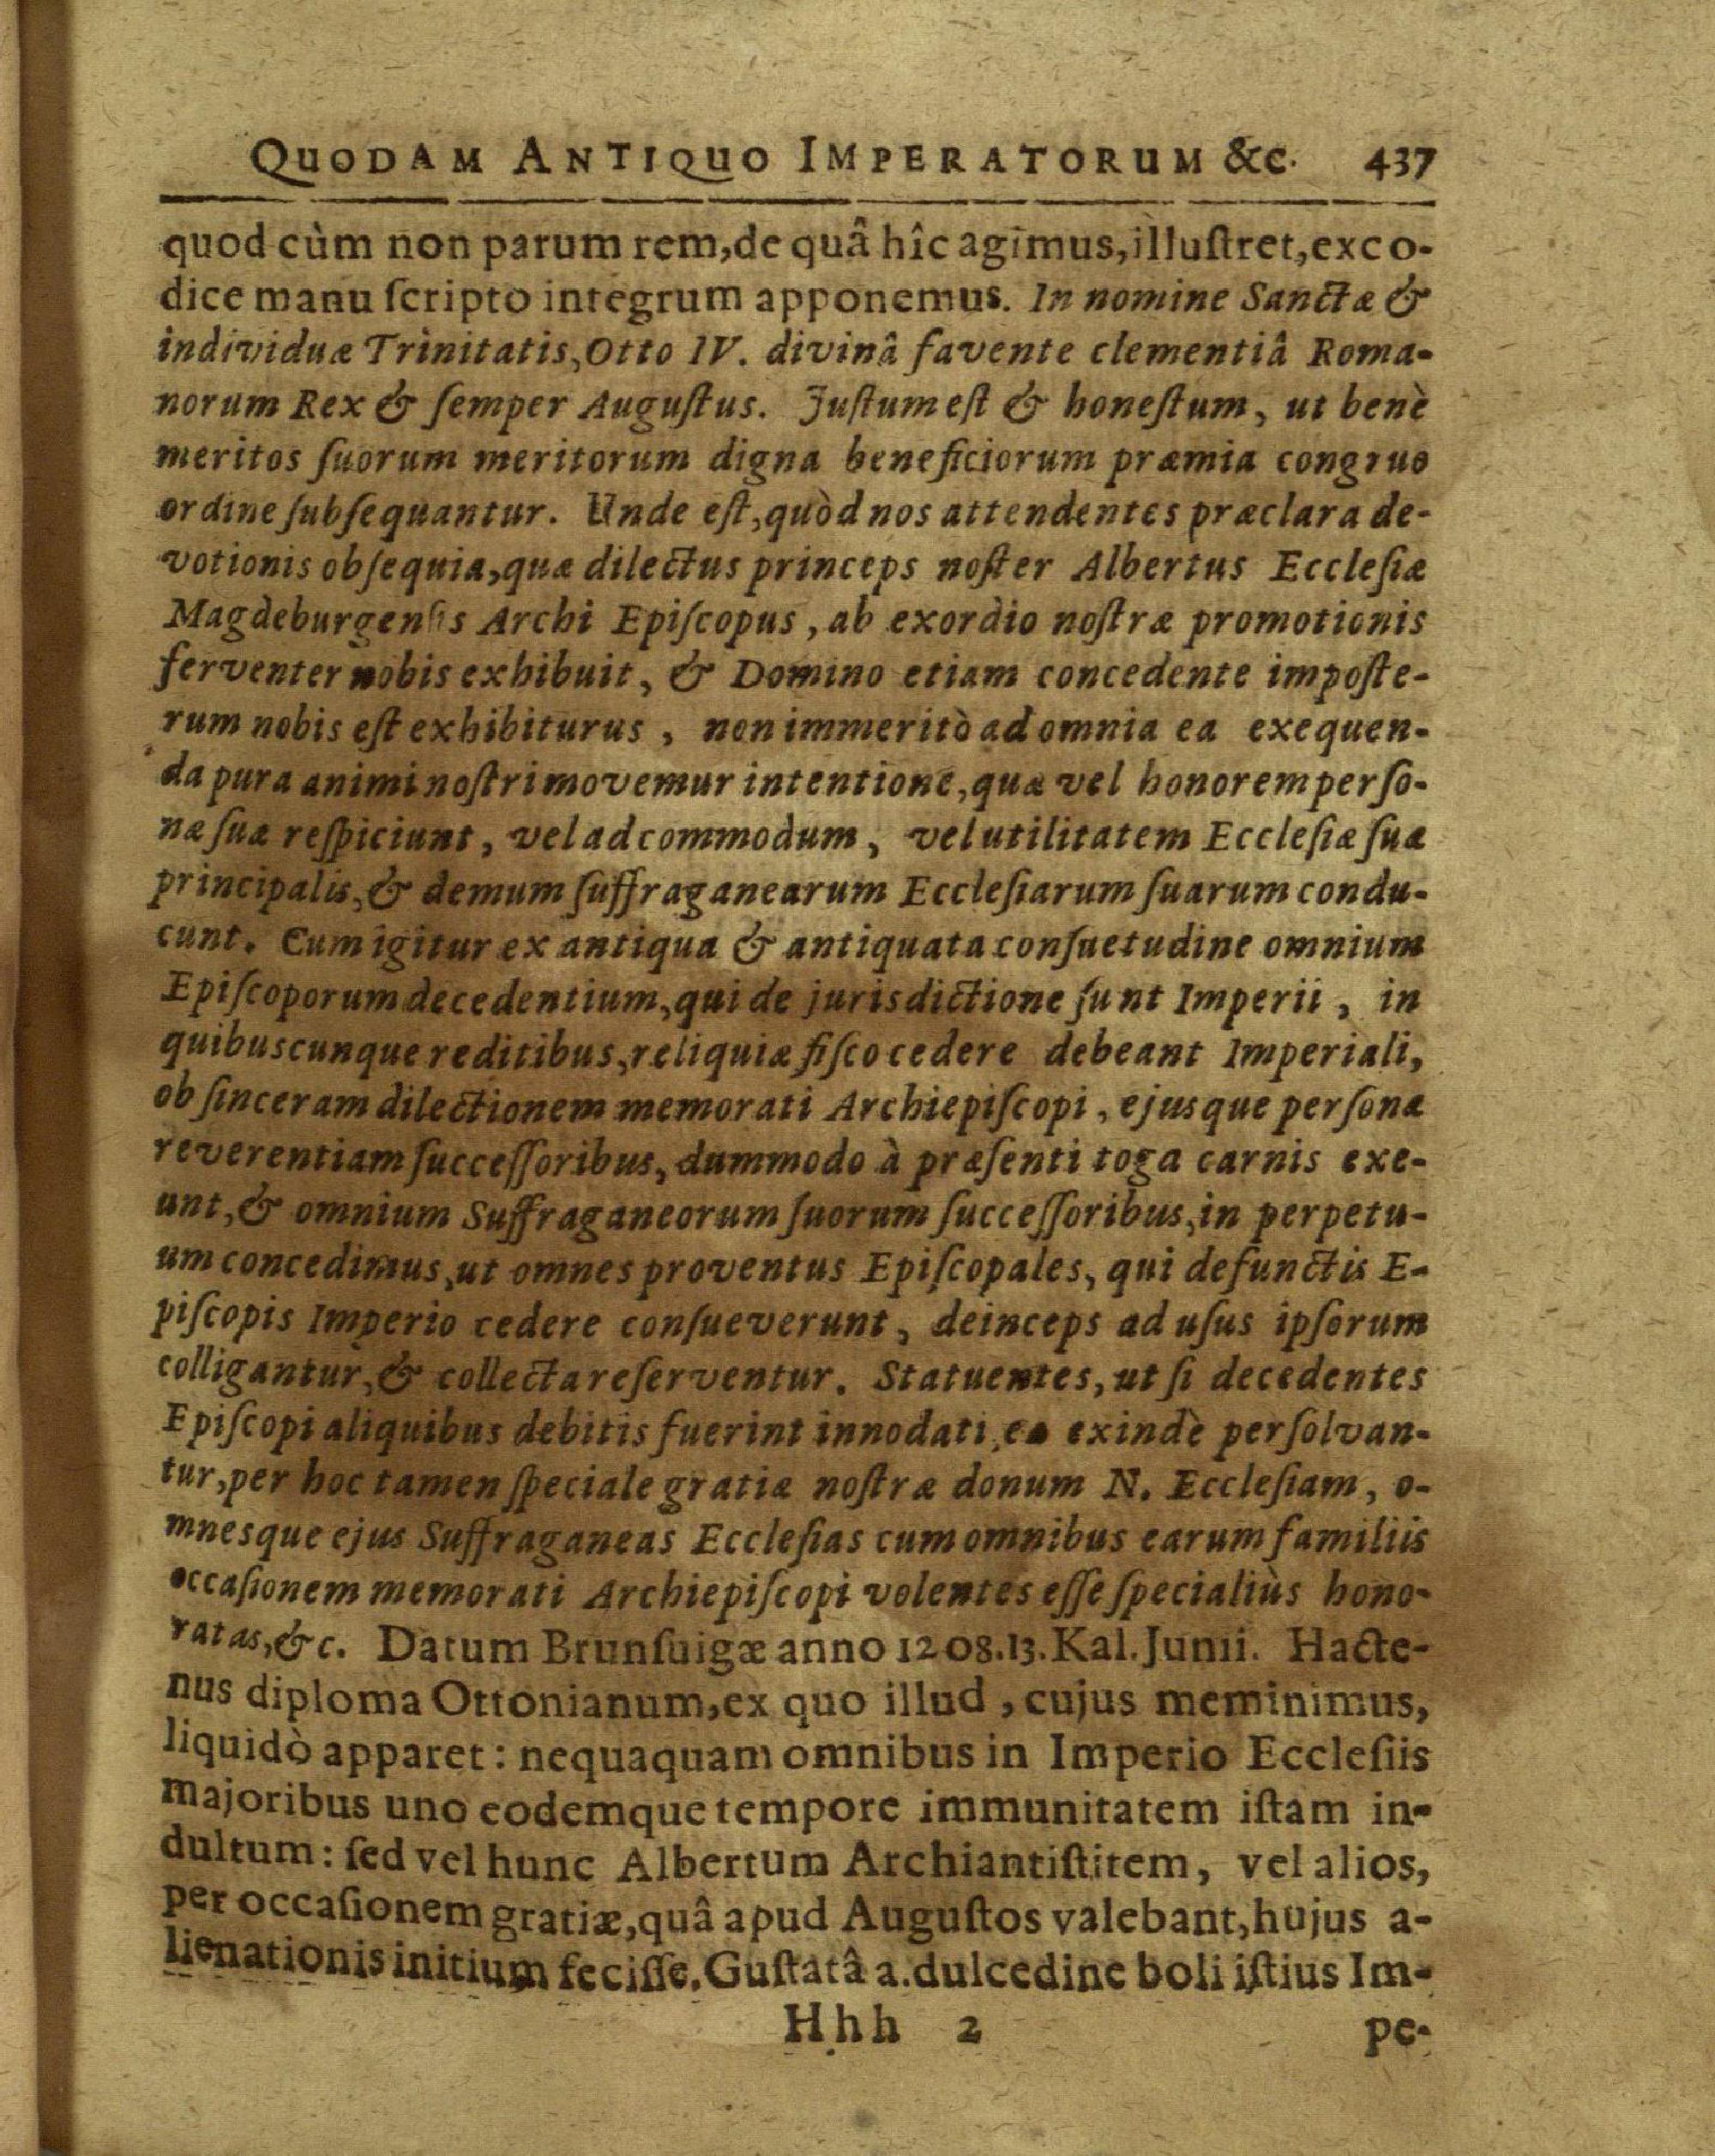 QUODAM ANTIQUO IMPERATORUM &c. 437
quod cùm non parum rem, de quâ hîc agimus, illuſtret, ex co-
dice manu ſcripto integrum apponemus. In nomine Sanctæ &
individuæ Trinitatis, Otto IV. divinâ favente clementiâ Roma-
norum Rex & ſemper Auguſtus. Juſtum eſt & honeſtum, ut benè
meritos ſuorum meritorum digna beneficiorum præmia congruo
ordine ſubſequantur. Unde eſt, quòd nos attendentes præclara de-
votionis obſequia, quæ dilectus princeps noſter Albertus Eccleſiæ
Magdeburgenſis Archi Epiſcopus, ab exordio noſtræ promotionis
ferventer nobis exhibuit, & Domino etiam concedente impoſte-
rum nobis eſt exhibiturus, non immeritò ad omnia ea exequen-
da pura animi noſtri movemur intentione, quæ vel honorem perſo-
næ ſuæ reſpiciunt, vel ad commodum, vel utilitatem Eccleſiæ ſuæ
principalis, & demum ſuffraganearum Eccleſiarum ſuarum condu-
cunt. Cum igitur ex antiqua & antiquata conſuetudine omnium
Epiſcoporum decedentium, qui de jurisdictione ſunt Imperii, in
quibuscunque reditibus, reliquiæ fiſco cedere debeant Imperiali,
ob ſinceram dilectionem memorati Archiepiſcopi, ejusque perſonæ
reverentiam ſucceſſoribus, dummodo à præſenti toga carnis exe-
unt, & omnium Suffraganeorum ſuorum ſucceſſoribus, in perpetu-
um concedimus, ut omnes proventus Epiſcopales, qui defunctis E-
piſcopis Imperio cedere conſueverunt, deinceps ad uſus ipſorum
colligantur, & collecta reſerventur. Statuentes, ut ſi decedentes
Epiſcopi aliquibus debitis fuerint innodati, ea exindè perſolvan-
tur, per hoc tamen ſpeciale gratiæ noſtræ donum N. Eccleſiam, o-
mnesque ejus Suffraganeas Eccleſias cum omnibus earum familiis
occaſionem memorati Archiepiſcopi volentes eſſe ſpecialiùs hono-
ratas, &c. Datum Brunſuigæ anno 1208. 13. Kal. Junii. Hacte-
nus diploma Ottonianum, ex quo illud, cujus meminimus,
liquidò apparet: nequaquam omnibus in Imperio Eccleſiis
majoribus uno eodemque tempore immunitatem iſtam in-
dultum: ſed vel hunc Albertum Archiantiſtitem, vel alios,
per occaſionem gratiæ, quâ apud Auguſtos valebant, hujus a-
lienationis initium feciſſe. Guſtatâ a. dulcedine boli iſtius Im-
Hhh 2 pe-